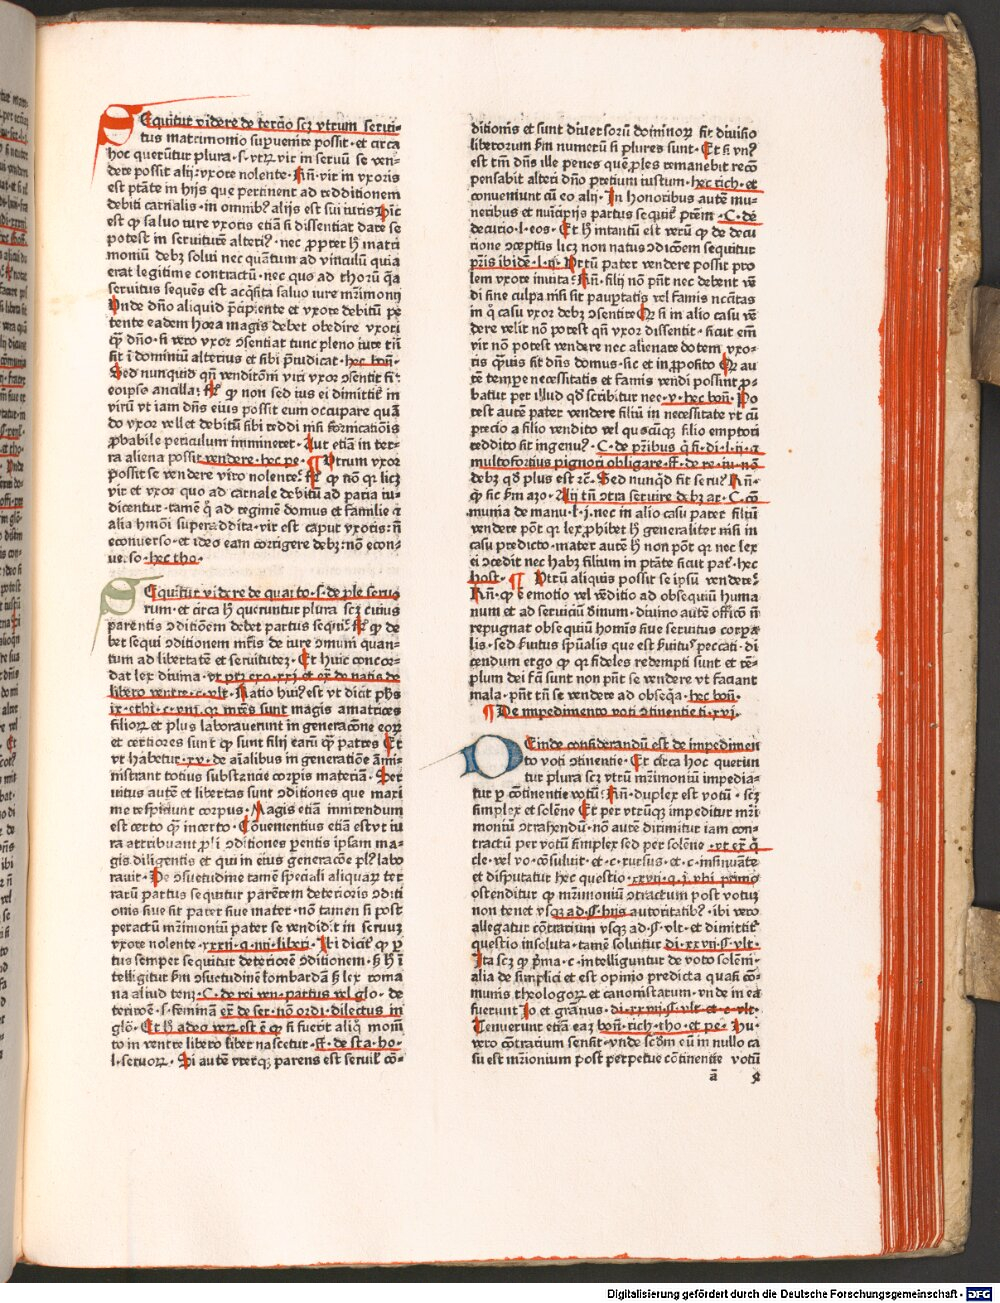 SEquitur videre de tercio scz vtrum serui-
tus matrimonio supuenire possit · et circa
hoc querūtur plura · s · vtrꝫ vir in seruū se ven-
dere possit alij : vxore nolente · Rñ · vir in vxoris
est ptāte in hijs que pertinent ad redditionem
debiti carnalis · in omnibꝰ alijs est sui iuris Hīc
est ꝙ saluo iure vxoris etiā si dissentiat dare se
potest in seruitutē alteriꝰ · nec ꝓpter h̄ matri
moniū debꝫ solui nec quātum ad vinculū quia
erat legitime contractū · nec quo ad thoꝝ q̄a
seruitus sequēs est acq̄sita saluo iure mr̄imonij
Vnde dn̄o aliquid p̄cipiente et vxore debitū pe
tente eadem hora magis debet obedire vxori
ꝙ̄ dn̄o · si vero vxor ↄsentiat tunc pleno iure tn̄
fit ī dominiū alterius et sibi p̄iudicat · hec bon̄ ·
Sed nunquid qn̄ venditōni viri vxor ↄsentit fit
eoipso ancilla : ꝙ non sed ius ei dimittit in
virū vt iam dn̄s eius possit eum occupare quā
do vxor vellet debitū sibi reddi nisi fornicatiōis
ꝓbabile periculum immineret · Aut etiā in ter-
ra aliena possit vendere · hec pe · ¶ Vtrum vxor
possit se vendere viro nolente · ꝙ nō qꝛ licꝫ
vir et vxor quo ad carnale debitū ad paria iu-
dicentur · tamē q̊ ad regimē domus et familie ⁊
alia hmōi superaddita · vir est caput vxoris : n̄
econuerso · et ideo eam corrigere debꝫ : nō econ-
uerso · hec tho ·
SEquitur videre de quarto · s · de ple seruo
rum · et circa h̄ queruntur plura scꝫ cuius
parentis ↄditionem debet partus sequi : ꝙ de
bet sequi ↄditionem mr̄is de iure ↄmuni quan-
tum ad libertatē et seruitutez · Et huic concor-
dat lex diuina · vt ptꝫ exo · xxj · et ex̄ de natis de
libero ventre · c · vlt · Ratio huiꝰ est vt dicit phs
ix · ethi · c · vij · qꝛ mr̄es sunt magis amatrices
filioꝝ et plus laborauerunt in generacōne eoꝝ
et certiores sunt ꝙ sunt filij earū ꝙ̄ patres Et
vt habetur · xv · de aīalibus in generatiōe āmi-
nistrant totius substancie corpis materiā · Ser
uitus autē et libertas sunt ↄditiones que maxi
me respiciunt corpus · Magis etiā innitendum
est certo ꝙ̄ incerto · Conuenientius etiā est vt iu
ra attribuant ꝓli ↄditiones parentis ipsam ma-
gis diligentis et qui in eius generacōe plꝰ labo
rauit · De ↄsuetudine tamē speciali aliquaꝝ ter
rarū partus sequitur parētem deterioris ↄditi
onis siue sit pater siue mater · nō tamen si post
peractū mr̄imoniū pater se vendidit in seruuꝫ
vxore nolente · xxxij · q · iiij · liberi · Ibi dicit ꝙ p̄
tus semper sequitur deteriorē ↄditionem · s̄ h̄ ī
telligitur s̄m ↄsuetudinē lombardā s̄ lex roma
na aliud tenꝫ · C · de rei ven · partus vel glo · de
teriorē · s · feminā ex̄ de ser · nō ordi · dilectus in
glō · Et h̄ adeo verꝝ est ē ꝙ si fuerit aliq̊ momē
to in ventre libero liber nascetur · ff · de sta · ho ·
l · seruoꝝ · Si autē vterqꝫ parens est seruilꝭ cō-
ditionis et sunt diuersoꝝ dominoꝝ fit diuisio
liberorum s̄m numerū si plures sunt · Et si vnꝰ
est tn̄ dn̄s ille penes quē ples remanebit recō
pensabit alteri dn̄o pretium iustum · hec rich · et
conueniunt cū eo alij · In honoribus autē mu-
neribus et mūcipijs partus sequit prēm · C · de
decurio · l · eos · Et h̄ intantū est verū ꝙ de decu
rione ↄceptus licꝫ non natus ↄdicōem sequitur
pr̄is ibidē · l · ij · Vtrū pater vendere possit pro
lem vxore inuita : Rn̄ · filij nō pn̄t nec debent vē
di sine culpa nisi sit paupertatis vel famis ncc̄itas
in q̄ casu vxor debꝫ ↄsentire Qꝛ si in alio casu vē
dere velit nō potest qn̄ vxor dissentit · sicut em̄
vir nō potest vendere nec alienare dotem vxo-
ris ꝙ̄uis sit dn̄s domus · sic et in ꝓposito Qꝛ au
tē tempore necessitatis et famis vendi possint ꝓ-
batur per illud qd̄ scribitur nee · v · hec bon̄ · Po
test autē pater vendere filiū in necessitate vt cū
precio a filio vendito vel quocūqꝫ filio emptori
reddito sit ingenuꝰ · C · de pr̄ibus q̇ fi · di · l · ij · ⁊
multofortius pignori obligare · ff · de re · iu · nō
debꝫ qd̄ plus est ⁊c · Sed nunqd̄ fit seruꝰ Rn̄ ·
ꝙ sic s̄m azo · Alij tn̄ ↄtra seruire debꝫ ar · C · cō
munia de manu · l · j · nec in alio casu pater filiū
vendere pōt qꝛ lex ꝓhibet h̄ generaliter nisi in
casu predicto · mater autē h̄ non pōt qꝛ nec lex
ei ↄcedit nec habꝫ filium in ptāte sicut pat̄ · hec
host · ¶ Vtrū aliquis possit se ipsū vendere :
Rn̄ · ꝙ ē emotio vel vēditio ad obsequiū huma
num et ad seruiciū diuinum · diuino autē officō n̄
repugnat obsequiū homīs siue seruitus corpa
lis · sed seruitus spūalis que est seruitꝰ peccati · di
cendum ergo ꝙ qꝛ fideles redempti sunt et tē-
plum dei sc̄ī sunt non pn̄t se vendere vt faciant
mala · pn̄t tn̄ se vendere ad obseq̄a · hec bon̄ ·
¶ De impedimento voti ↄtinentie ti · xvj ·
DEinde considerandū est de impedimen
to voti ↄtinentie · Et circa hoc querun
tur plura scꝫ vtrū mr̄imoniū impedia-
tur p̱ cōtinentie votū : Rn̄ · duplex est votū · scꝫ
simplex et solēne Et per vtrūqꝫ impeditur mr̄i
moniū ↄtrahendū · nō autē dirimitur iam con-
tractū per votū simplex sed per solēne · vt ex̄ q̇
cle · vel vo · cōsuluit · et · c · rursus · et · c · insinuāte
et disputatur hec questio · xxvij · q · j · vbi primo
ostenditur ꝙ mr̄imoniū ↄtractum post votuꝫ
non tenet vsqꝫ ad · § · hijs autoritatibꝰ · ibi vero
allegatur cōtrarium vsqꝫ ad · § · vlt · et dimittit
questio insoluta · tamē soluitur · di · xxvij · § · vlt ·
Ita scꝫ ꝙ p̄ma · c · intelliguntur de voto solēni ·
alia de simplici et est opinio predicta quasi cō-
munis theologoꝝ et canonistarum · vnde in ea
fuerunt Io et gratianus · di · xxvij · § · vlt · et · c · vlt ·
Tenuerunt etiā eaꝫ bon̄ · rich · tho · et pe · Hu ·
vero cōtrarium sensit · vnde scd̄m eū in nullo ca
su est mr̄ionium post perpetue cōtinentie votū
ā 5
Digitalisierung gefördert durch die Deutsche Forschungsgemeinschaft - DFG